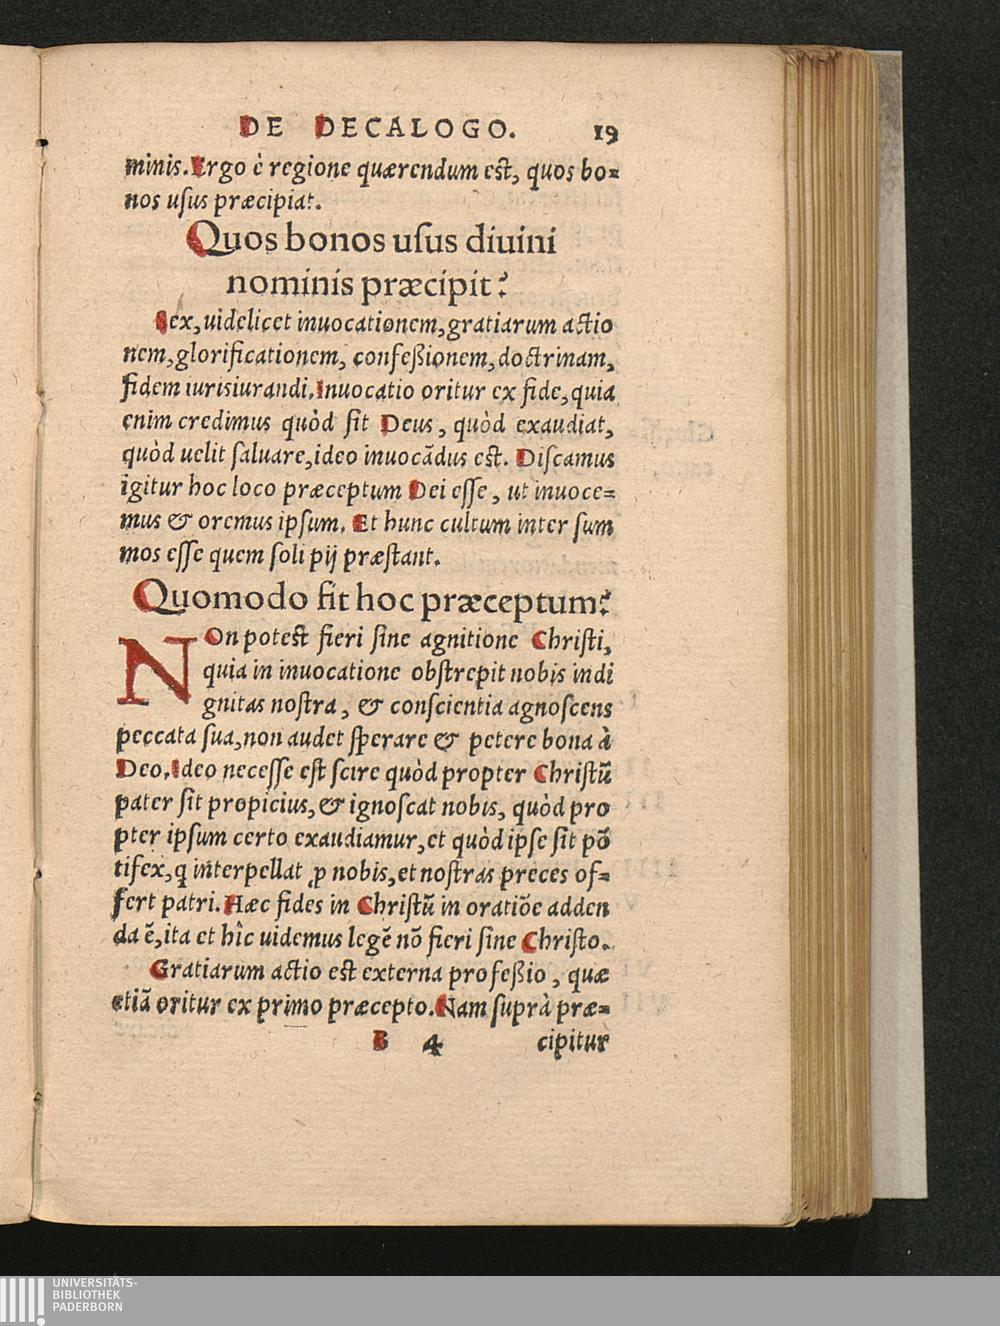 DE DECALOGO. 19
minis. Ergo è regione quærendum est, quos bo=
nos uſus præcipiat.
Quos bonos uſus diuini
nominis præcipit?
Sex, uidelicet inuocationem, gratiarum actio
nem, glorificationem, confeßionem, doctrinam,
fidem iurisiurandi. Inuocatio oritur ex fide, quia
enim credimus quòd ſit Deus, quòd exaudiat,
quòd uelit ſaluare, ideo inuocãdus est. Diſcamus
igitur hoc loco præceptum Dei eſſe, ut inuoce=
mus & oremus ipſum. Et hunc cultum inter ſum
mos eſſe quem ſoli pij præſtant.
Quomodo fit hoc præceptum?
NOn potest fieri ſine agnitione Chriſti,
quia in inuocatione obſtrepit nobis indi
gnitas noſtra, & conſcientia agnoſcens
peccata ſua, non audet ſperare & petere bona à
Deo. Ideo neceſſe eſt ſcire quòd propter Chriſtũ
pater ſit propicius, & ignoſcat nobis, quòd pro
pter ipſum certo exaudiamur, et quòd ipſe ſit põ
tifex, q̃ interpellat ꝓ nobis, et noſtras preces of=
fert patri. Hæc fides in Chriſtũ in oratiõe adden
da ẽ, ita et hîc uidemus legẽ nõ fieri ſine Chriſto.
Gratiarum actio est externa profeßio, quæ
etiã oritur ex primo præcepto. Nam ſuprà præ=
B 4 cipitur
UNIVERSITÄTS-
BIBLIOTHEK
PADERBORN